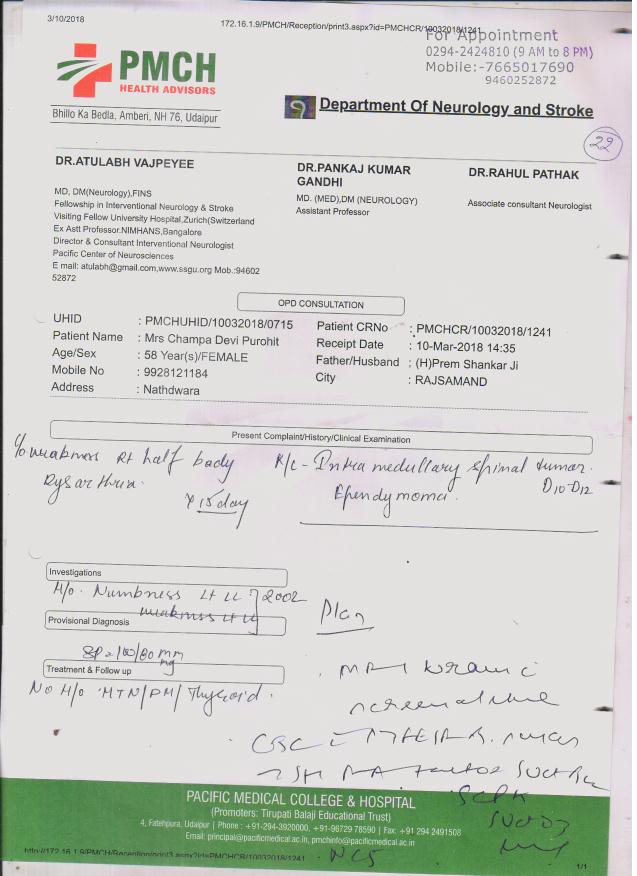 3/10/2018
172.16.1.9/PMCH/Reception/print3.aspx?id=PMCHCR/10032018/1241
For Appointment
0294-2424810 (9 AM to 8 PM)
Mobile:-7665017690
9460252872
PMCH
HEALTH ADVISORS
Bhillo Ka Bedla, Amberi, NH 76, Udaipur
Department Of Neurology and Stroke
22
DR.ATULABH VAJPEYEE
MD, DM(Neurology),FINS
Fellowship in Interventional Neurology & Stroke
Visiting Fellow University Hospital,Zurich(Switzerland
Ex Astt Professor.NIMHANS,Bangalore
Director & Consultant Interventional Neurologist
Pacific Center of Neurosciences
E mail: atulabh@gmail.com,www.ssgu.org Mob.:94602
52872
DR.PANKAJ KUMAR
GANDHI
MD. (MED),DM (NEUROLOGY)
Assistant Professor
DR.RAHUL PATHAK
Associate consultant Neurologist
OPD CONSULTATION
UHID : PMCHUHID/10032018/0715
Patient Name : Mrs Champa Devi Purohit
Age/Sex : 58 Year(s)/FEMALE
Mobile No : 9928121184
Address : Nathdwara
Patient CRNo : PMCHCR/10032018/1241
Receipt Date : 10-Mar-2018 14:35
Father/Husband : (H)Prem Shankar Ji
City : RAJSAMAND
Present Complaint/History/Clinical Examination
c/o weakness Rt half body
Dysarthria.
x 15 day
K/c - Intra medullary spinal tumor.
D10-D12
Ependymoma.
Investigations
H/o. Numbness Lt LL 2002
weakness Lt LL
Provisional Diagnosis
BP = 100/80 mm
Hg
Treatment & Follow up
No H/o HTN/DM/Thyroid.
Plan
MRI
CBC
TSH RA factor
SCPK
NCS
PACIFIC MEDICAL COLLEGE & HOSPITAL
(Promoters: Tirupati Balaji Educational Trust)
4, Fatehpura, Udaipur | Phone : +91-294-3920000, +91-96729 78590 | Fax: +91 294 2491508
Email: principal@pacificmedical.ac.in, info@pacificmedical.ac.in
http://172.16.1.9/PMCH/Reception/print3.aspx?id=PMCHCR/10032018/1241
1/1